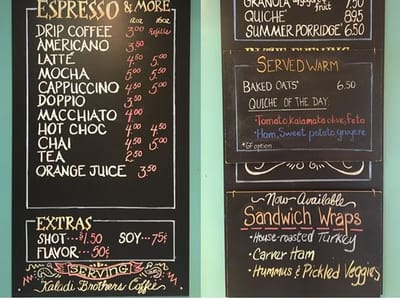 ESPRESSO & MORE
12oz 16oz
DRIP COFFEE 3.00 Refills
AMERICANO 3.50
LATTÉ 4.50 5.00
MOCHA 5.00 5.50
CAPPUCCINO 4.50 5.00
DOPPIO 3.50
MACCHIATO 4.00
HOT CHOC 4.00 4.50
CHAI 4.50 5.00
TEA 2.50
ORANGE JUICE 3.50
EXTRAS
SHOT... $1.50 SOY... 75¢
FLAVOR... 50¢
SERVING
Kaladi Brothers Coffee
GRANOLA fruit 7.50
QUICHE 8.95
SUMMER PORRIDGE 6.50
SERVED WARM
BAKED OATS* 6.50
QUICHE OF THE DAY:
• Tomato, kalamata olive, Feta
• Ham, Sweet potato, gruyere
*GF option
Now Available
Sandwich Wraps
• House-roasted Turkey
• Carver Ham
• Hummus & Pickled Veggies